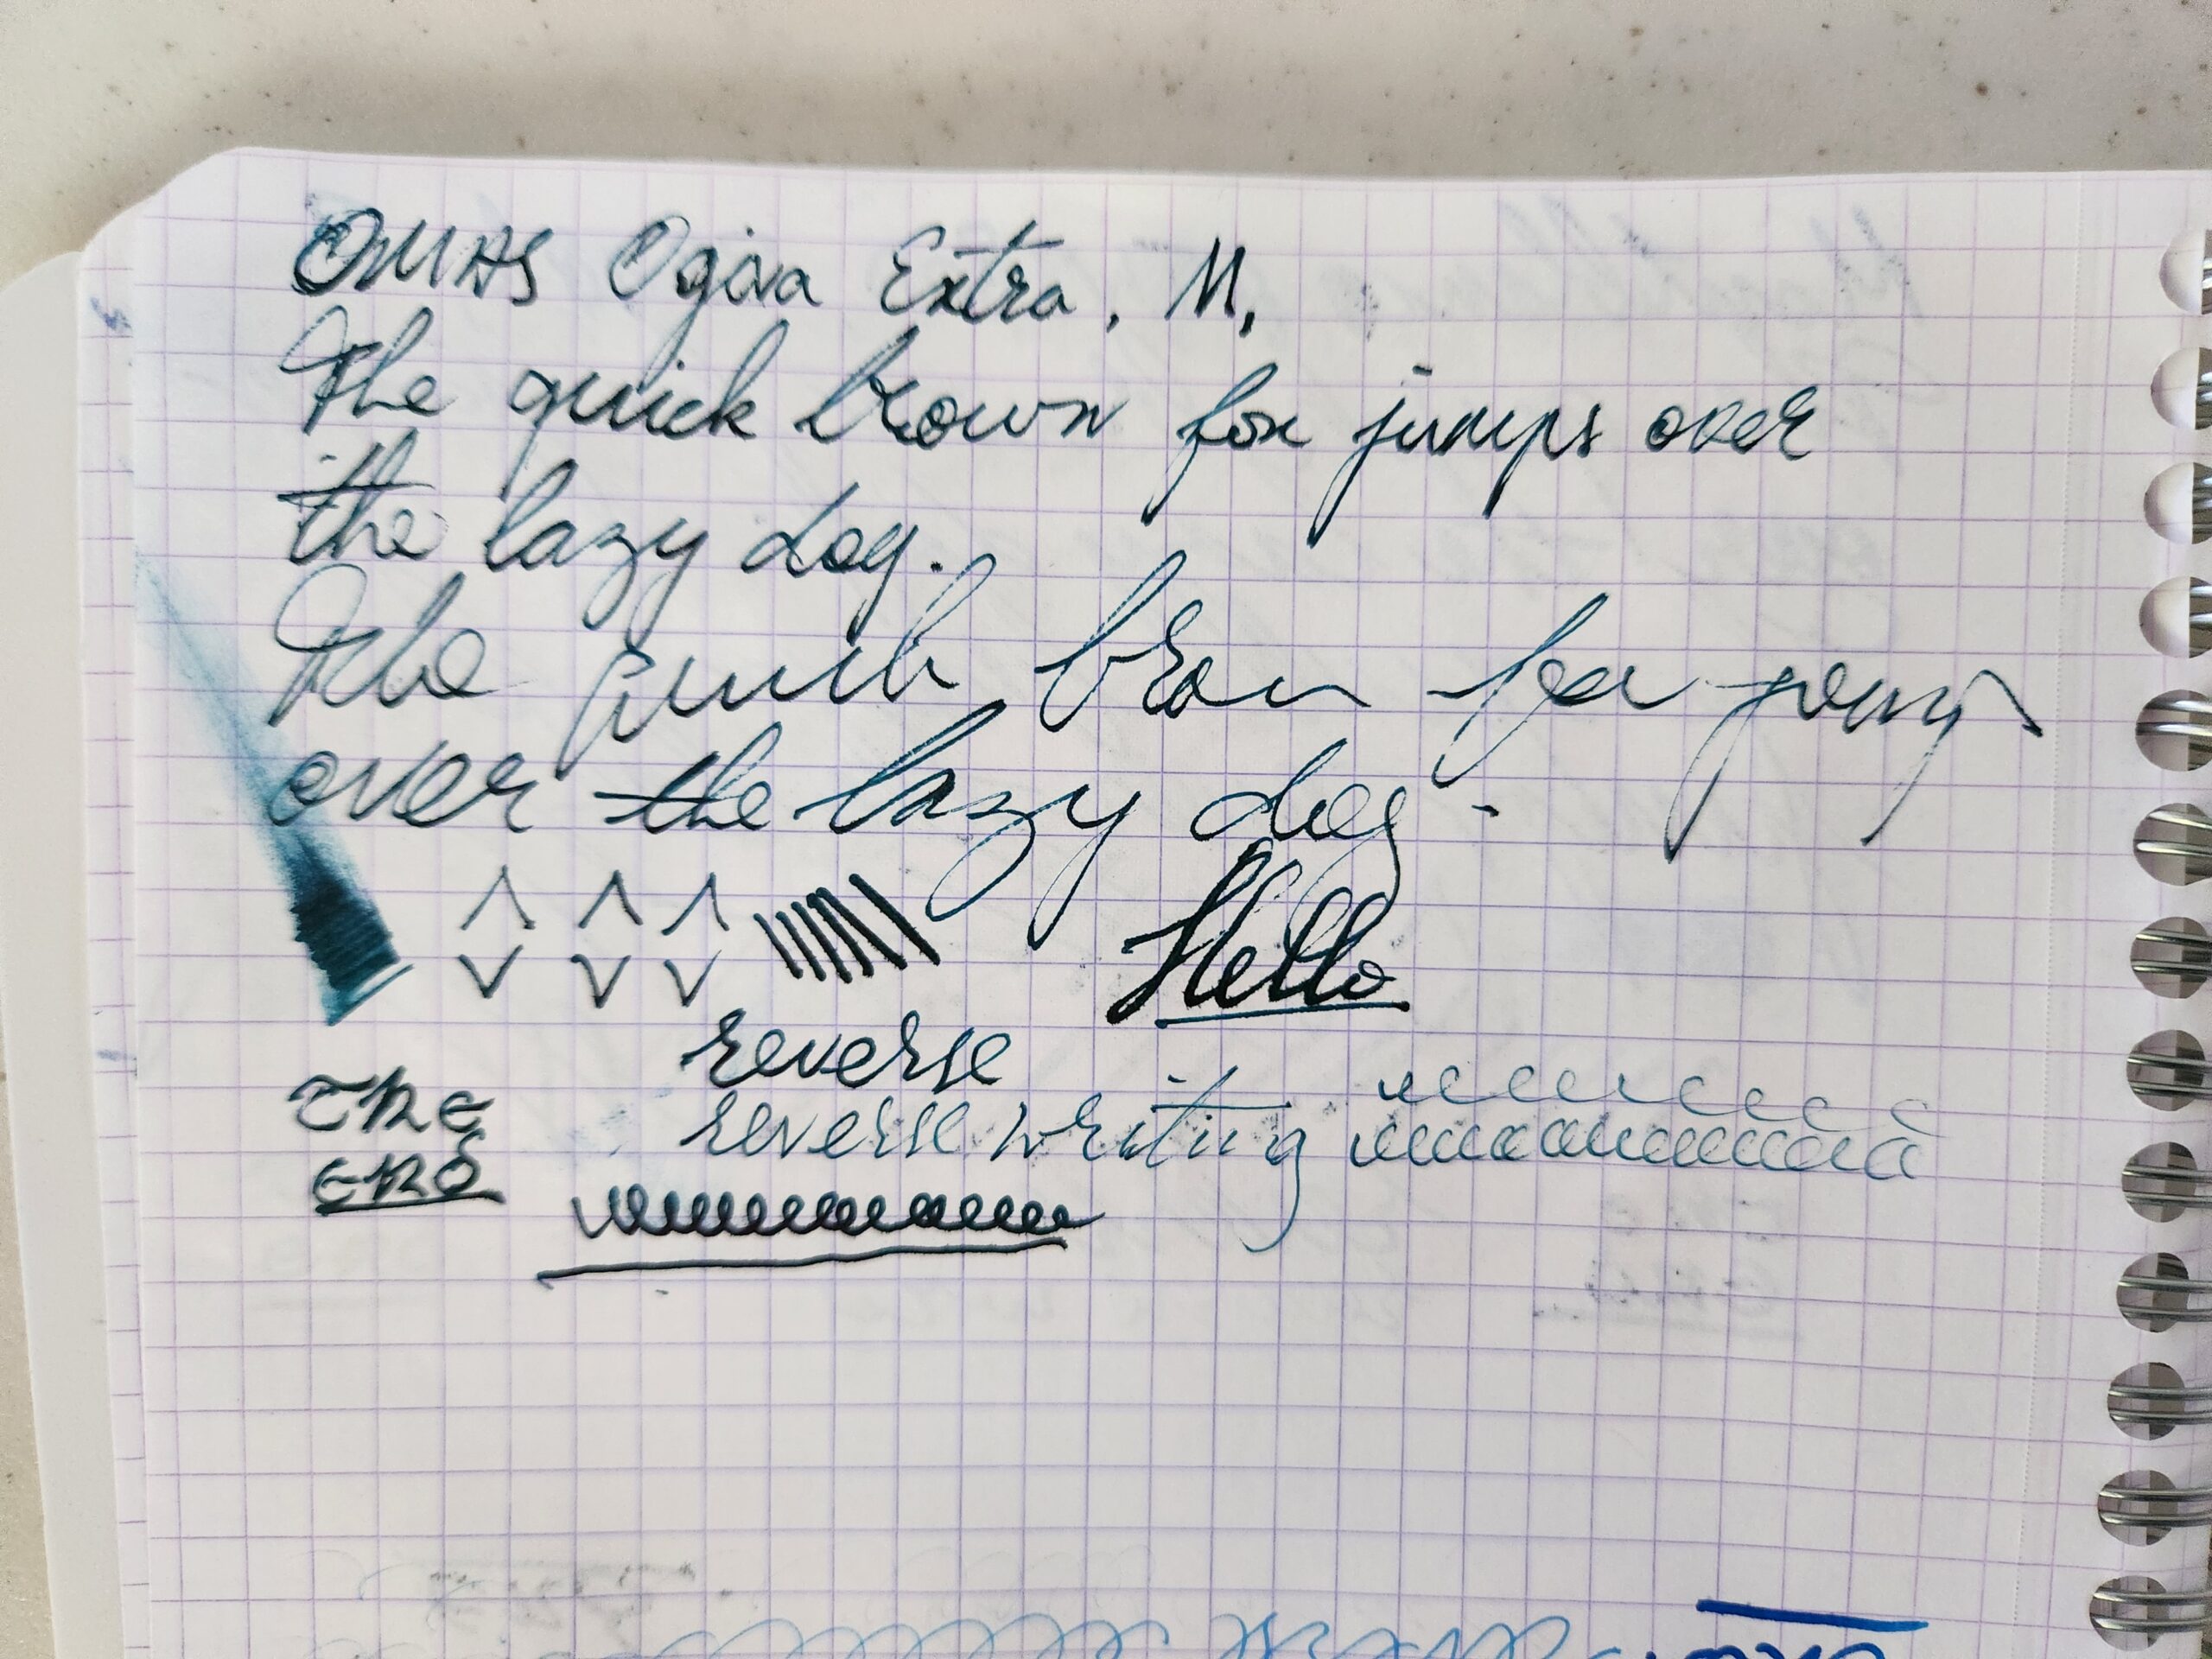 OMAS Ogiva Extra, M,
The quick brown fox jumps over
the lazy dog.
The quick brown fox jumps
over the lazy dog.
Hello
reverse
reverse writing
The
end